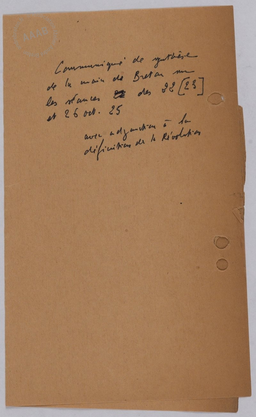 Communiqué de synthèse
de la main de Breton sur
les séances des 22 [23]
et 26 oct. 25
avec adjonction à la
définition de la Révolution